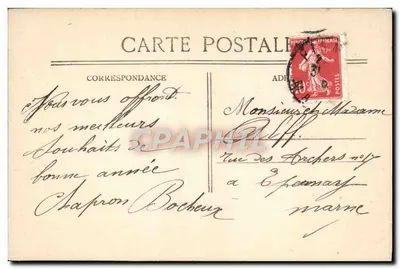 CARTE POSTALE
CORRESPONDANCE
Nous vous offront
nos meilleurs
souhaits de
bonne année
Chapron Bocheux
Monsieur et Madame
rue des Archers no 17
a Epernay
marne
POSTES
CPAPHIL